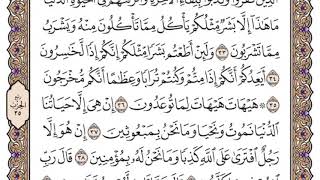 مَا هَٰذَا إِلَّا بَشَرٌ مِّثْلُكُمْ يَأْكُلُ مِمَّا تَأْكُلُونَ مِنْهُ وَيَشْرَبُ
مِمَّا تَشْرَبُونَ ٣٣ وَلَئِنْ أَطَعْتُم بَشَرًا مِّثْلَكُمْ إِنَّكُمْ إِذًا لَّخَٰسِرُونَ
٣٤ أَيَعِدُكُمْ أَنَّكُمْ إِذَا مِتُّمْ وَكُنتُمْ تُرَابًا وَعِظَٰمًا أَنَّكُم مُّخْرَجُونَ
٣٥ هَيْهَاتَ هَيْهَاتَ لِمَا تُوعَدُونَ ٣٦ إِنْ هِيَ إِلَّا حَيَاتُنَا
الدُّنْيَا نَمُوتُ وَنَحْيَا وَمَا نَحْنُ بِمَبْعُوثِينَ ٣٧ إِنْ هُوَ إِلَّا
رَجُلٌ افْتَرَىٰ عَلَى اللَّهِ كَذِبًا وَمَا نَحْنُ لَهُ بِمُؤْمِنِينَ ٣٨ قَالَ رَبِّ